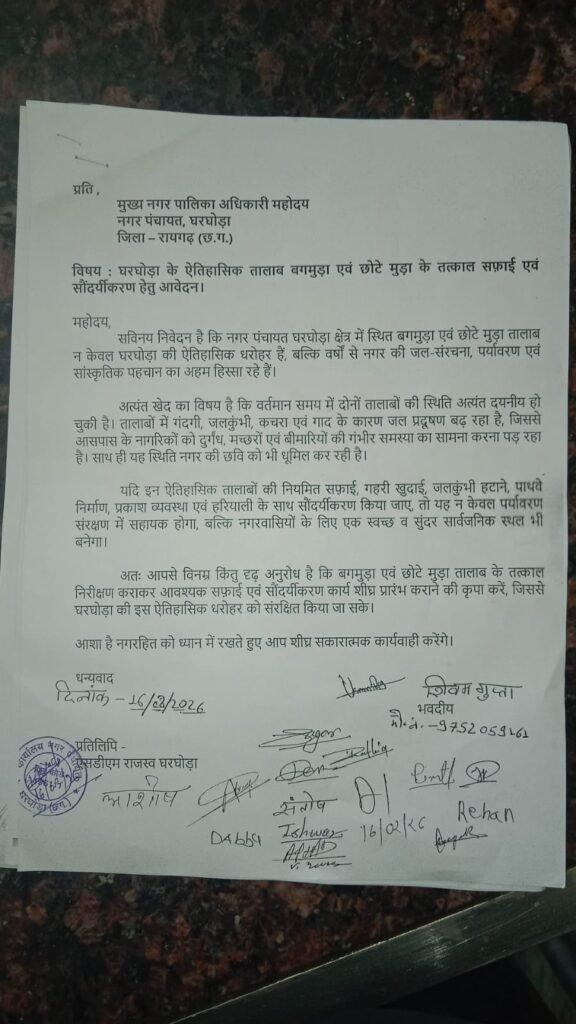 प्रति ,
मुख्य नगर पालिका अधिकारी महोदय
नगर पंचायत, घरघोड़ा
जिला – रायगढ़ (छ.ग.)
विषय : घरघोड़ा के ऐतिहासिक तालाब बगमुड़ा एवं छोटे मुड़ा के तत्काल सफ़ाई एवं
सौंदर्यीकरण हेतु आवेदन।
महोदय,
सविनय निवेदन है कि नगर पंचायत घरघोड़ा क्षेत्र में स्थित बगमुड़ा एवं छोटे मुड़ा तालाब
न केवल घरघोड़ा की ऐतिहासिक धरोहर हैं, बल्कि वर्षों से नगर की जल-संरचना, पर्यावरण एवं
सांस्कृतिक पहचान का अहम हिस्सा रहे हैं।
अत्यंत खेद का विषय है कि वर्तमान समय में दोनों तालाबों की स्थिति अत्यंत दयनीय हो
चुकी है। तालाबों में गंदगी, जलकुंभी, कचरा एवं गाद के कारण जल प्रदूषण बढ़ रहा है, जिससे
आसपास के नागरिकों को दुर्गंध, मच्छरों एवं बीमारियों की गंभीर समस्या का सामना करना पड़ रहा
है। साथ ही यह स्थिति नगर की छवि को भी धूमिल कर रही है।
यदि इन ऐतिहासिक तालाबों की नियमित सफ़ाई, गहरी खुदाई, जलकुंभी हटाने, पाथवे
निर्माण, प्रकाश व्यवस्था एवं हरियाली के साथ सौंदर्यीकरण किया जाए, तो यह न केवल पर्यावरण
संरक्षण में सहायक होगा, बल्कि नगरवासियों के लिए एक स्वच्छ व सुंदर सार्वजनिक स्थल भी
बनेगा।
अतः आपसे विनम्र किंतु दृढ़ अनुरोध है कि बगमुड़ा एवं छोटे मुड़ा तालाब के तत्काल
निरीक्षण कराकर आवश्यक सफ़ाई एवं सौंदर्यीकरण कार्य शीघ्र प्रारंभ कराने की कृपा करें, जिससे
घरघोड़ा की इस ऐतिहासिक धरोहर को संरक्षित किया जा सके।
आशा है नगरहित को ध्यान में रखते हुए आप शीघ्र सकारात्मक कार्यवाही करेंगे।
धन्यवाद
दिनांक - 16/02/2026
शिवम गुप्ता
भवदीय
मो.नं. - 9752059262
प्रतिलिपि -
एसडीएम राजस्व घरघोड़ा
संतोष
Ishwar
16/02/26
Rehan